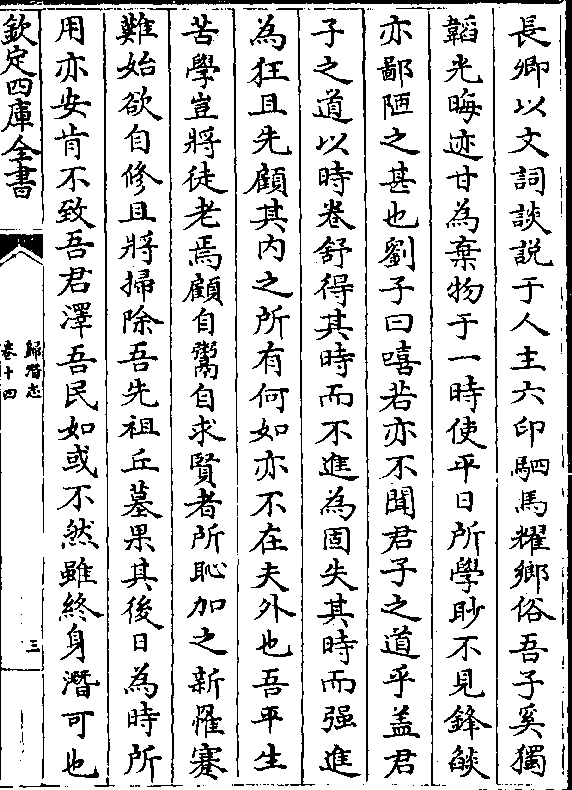 長卿以文詞談説于人主六印駟馬耀鄉俗吾子奚獨
韜光晦迹甘為棄物于一時使平日所學眇不見鋒燄
亦鄙陋之甚也劉子曰嘻若亦不聞君子之道乎盖君
子之道以時卷舒得其時而不進為固失其時而强進
為狂且先顧其内之所有何如亦不在夫外也吾平生
苦學豈將徒老焉顧自鬻自求賢者所恥加之新罹蹇
難始欲自修且將掃除吾先祖丘墓果其後日為時所
用亦安肯不致吾君澤吾民如或不然雖終身潛可也
欽定四庫全書
歸潛志
卷十四
三